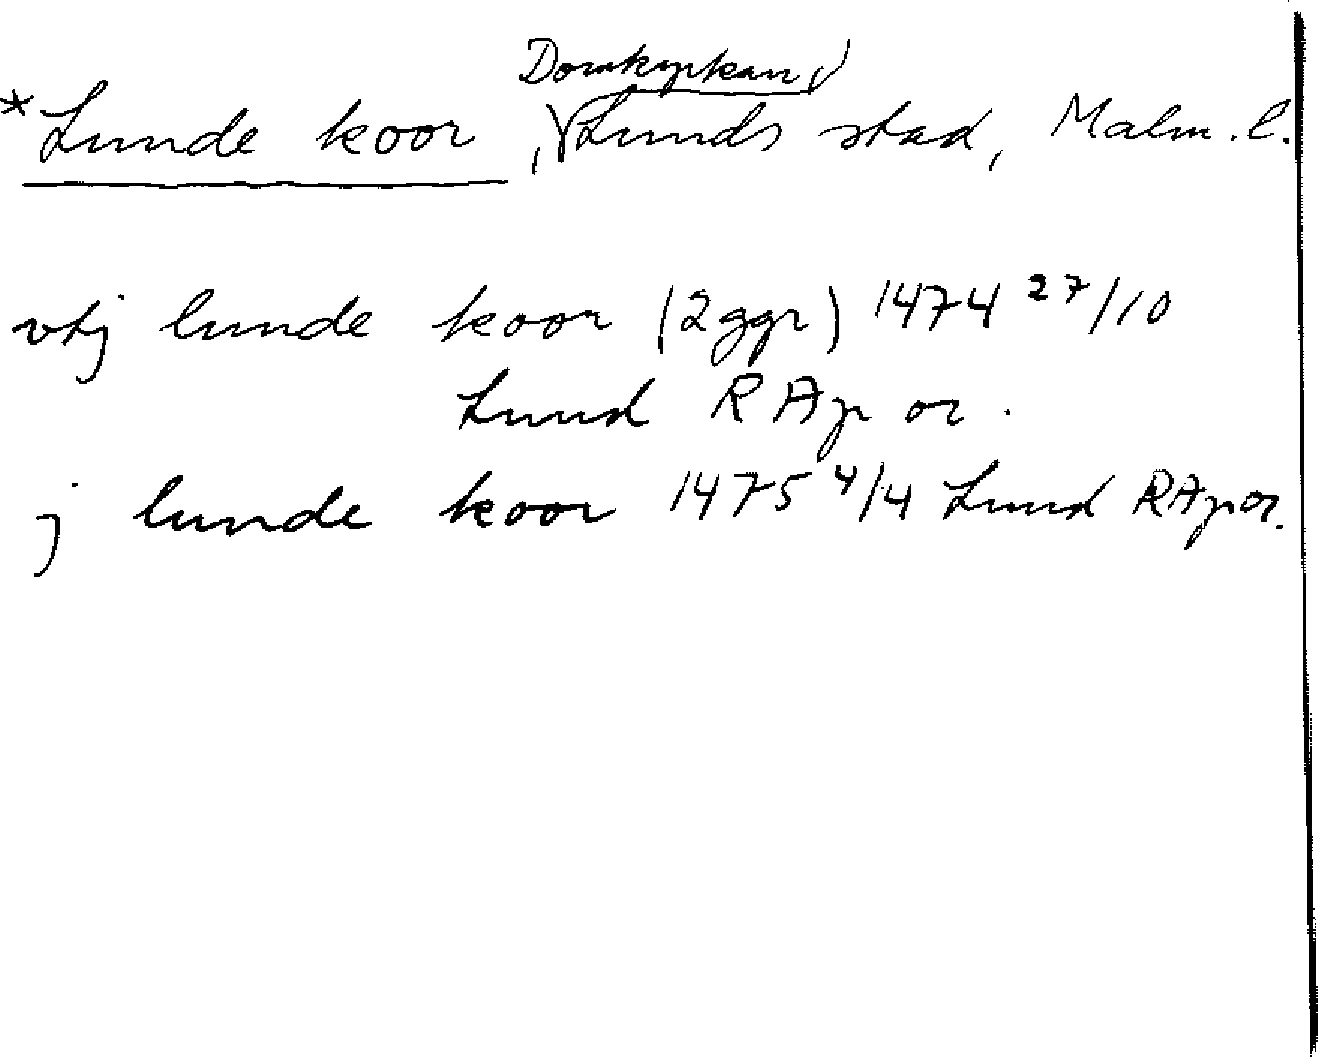 Domkyrkan,
*Lunde koor, Lunds stad, Malm. l.
vtj lunde koor (2 ggr) 1474 27/10
Lund RAp or.
j lunde koor 1475 4/4 Lund RAp or.